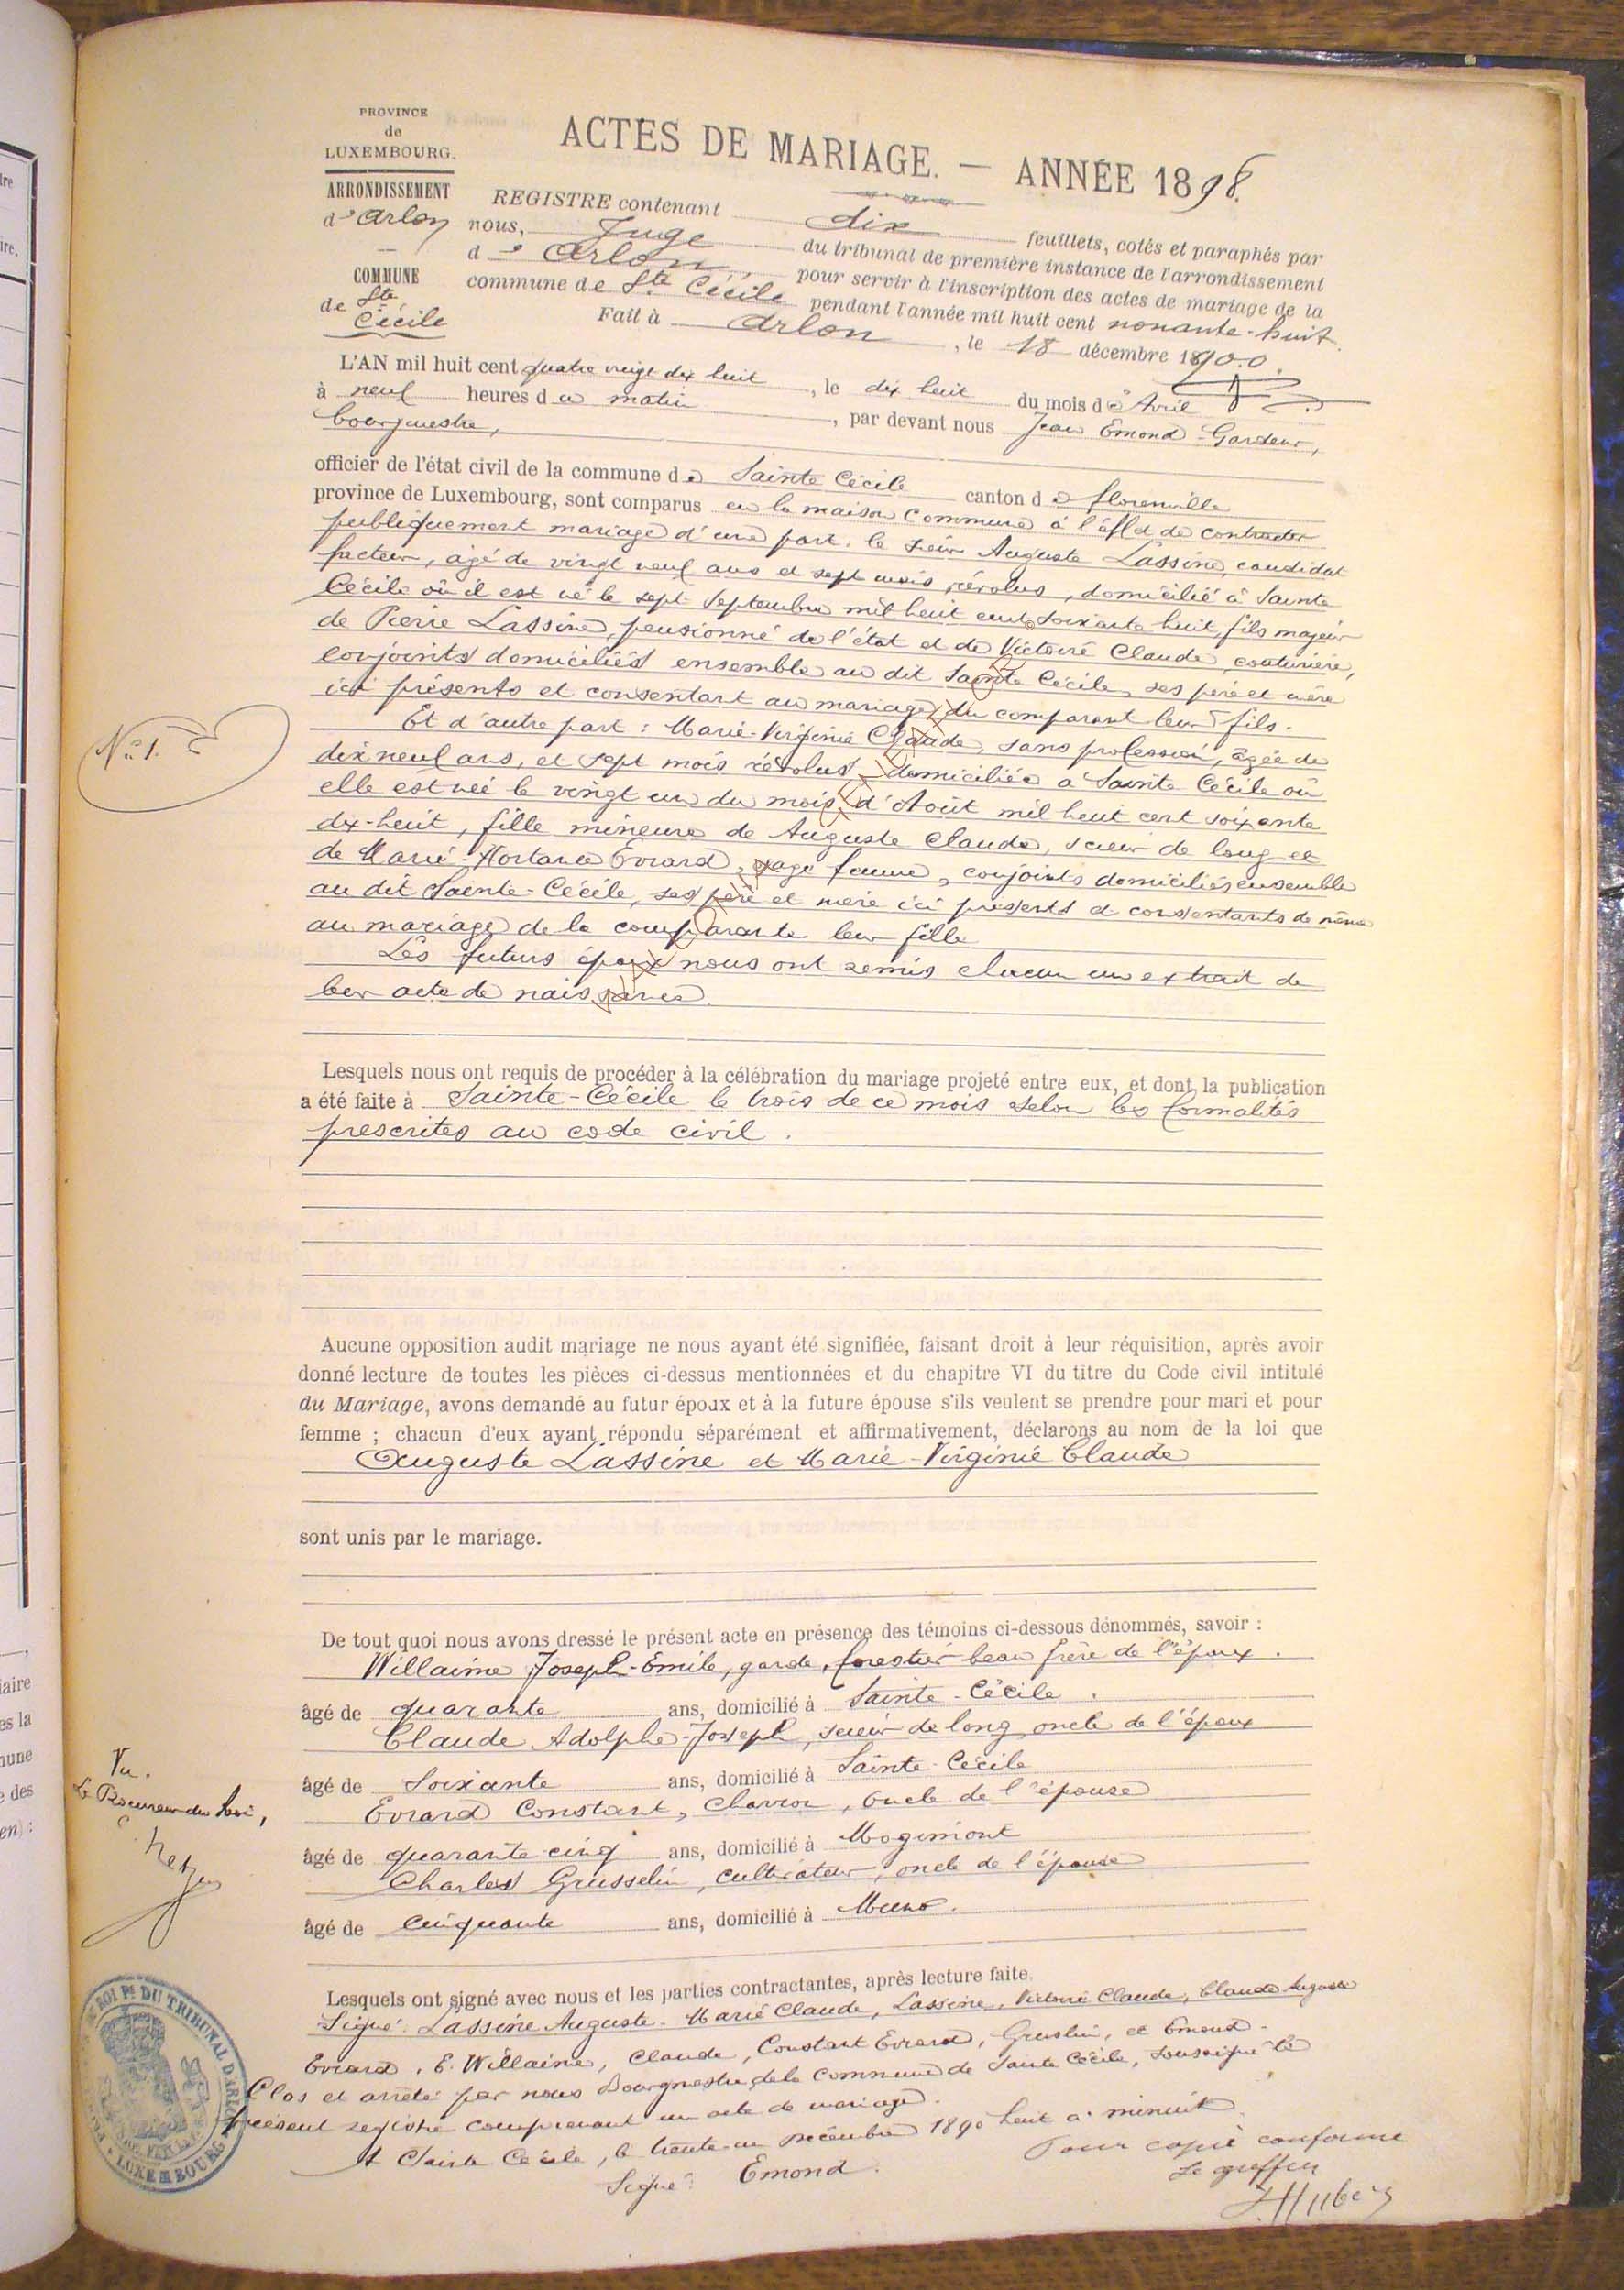 PROVINCE
de
LUXEMBOURG.
ARRONDISSEMENT
d'Arlon
COMMUNE
de Ste
Cécile
ACTES DE MARIAGE. — ANNÉE 1898.
REGISTRE contenant dix feuillets, cotés et paraphés par
nous, Juge du tribunal de première instance de l'arrondissement
d' Arlon pour servir à l'inscription des actes de mariage de la
commune de Ste Cécile pendant l'année mil huit cent nonante-huit.
Fait à Arlon, le 18 décembre 1900.
L'AN mil huit cent quatre vingt dix huit, le dix huit du mois d'Avril
à neuf heures du matin, par devant nous Jean Emond-Gardeur,
bourgmestre,
officier de l'état civil de la commune de Sainte Cécile canton de florenville
province de Luxembourg, sont comparus en la maison commune à l'effet de contracter
publiquement mariage d'une part, le sieur Auguste Lassine, candidat
facteur, agé de vingt neuf ans et sept mois révolus, domicilié à Sainte
Cécile où il est né le sept Septembre mil huit cent soixante huit, fils majeur
de Pierre Lassine, pensionné de l'état et de Victoire Claude, couturière,
conjoints domiciliés ensemble au dit Sainte Cécile, ses père et mère
ici présents et consentant au mariage du comparant leur fils.
Et d'autre part : Marie-Virginie Claude, sans profession, âgée de
N° 1.
dix neuf ans, et sept mois révolus domiciliée a Sainte Cécile où
elle est née le vingt un du mois d'Août mil huit cent soixante
dix-huit, fille mineure de Auguste Claude, scieur de long et
de Marie-Hortance Evrard, sage femme, conjoints domiciliés ensemble
au dit Sainte-Cécile, ses père et mère ici présents et consentants de même
au mariage de la comparante leur fille
Les futurs époux nous ont remis chacun un extrait de
leur acte de naissance.
Lesquels nous ont requis de procéder à la célébration du mariage projeté entre eux, et dont la publication
a été faite à Sainte-Cécile le trois de ce mois selon les formalités
prescrites au code civil.
Aucune opposition audit mariage ne nous ayant été signifiée, faisant droit à leur réquisition, après avoir
donné lecture de toutes les pièces ci-dessus mentionnées et du chapitre VI du titre du Code civil intitulé
du Mariage, avons demandé au futur époux et à la future épouse s'ils veulent se prendre pour mari et pour
femme ; chacun d'eux ayant répondu séparément et affirmativement, déclarons au nom de la loi que
Auguste Lassine et Marie-Virginie Claude
sont unis par le mariage.
De tout quoi nous avons dressé le présent acte en présence des témoins ci-dessous dénommés, savoir :
Willaime Joseph-Emile, garde forestier beau frère de l'époux.
âgé de quarante ans, domicilié à Sainte-Cécile.
Claude Adolphe-Joseph, scieur de long oncle de l'époux
âgé de Soixante ans, domicilié à Sainte-Cécile
Evrard Constant, Charron, oncle de l'épouse
âgé de quarante cinq ans, domicilié à Mogimont
Charles Grusselin, cultivateur, oncle de l'épouse
âgé de cinquante ans, domicilié à Muno.
Vu.
Le Procureur du Roi,
Lesquels ont signé avec nous et les parties contractantes, après lecture faite.
Signé. Lassine Auguste. Marie Claude, Lassine, Victoire Claude, Claude Auguste
Evrard, E. Willaime, Claude, Constant Evrard, Gruslin, et Emond.
Clos et arrêté par nous Bourgmestre de la Commune de Sainte Cécile, soussigné le
présent registre comprenant un acte de mariage.
A Sainte Cécile, le trente-un Décembre 1890 huit a minuit.
Signé: Emond.
Pour copie conforme
Le greffier
ROI PS DU TRIBUNAL D'ARLON
LUXEMBOURG